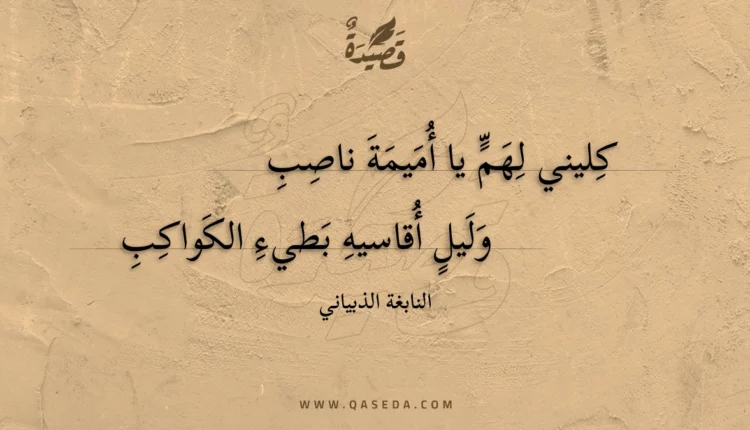 قَصِيدَةٌ
كِليني لِهَمٍّ يا أُمَيمَةَ ناصِبِ
وَلَيلٍ أُقاسيهِ بَطيءِ الكَواكِبِ
النابغة الذبياني
WWW.QASEDA.COM